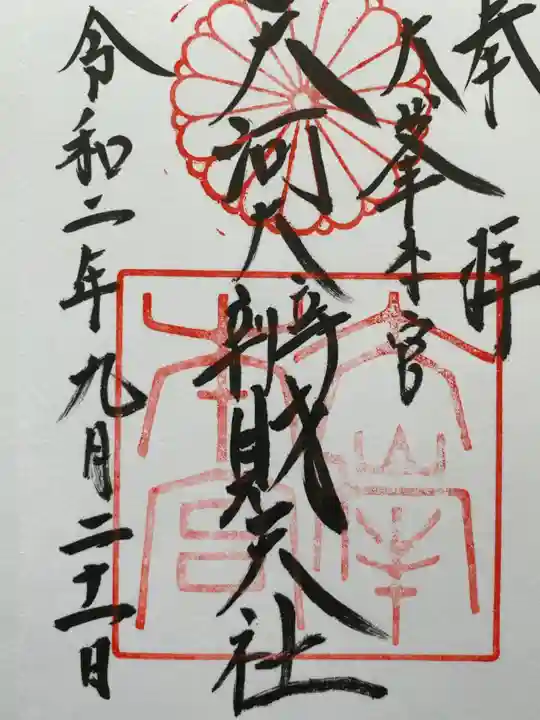 奉拝
大峯本宮
天河大辨財天社
令和二年九月二十一日
大峯本宮